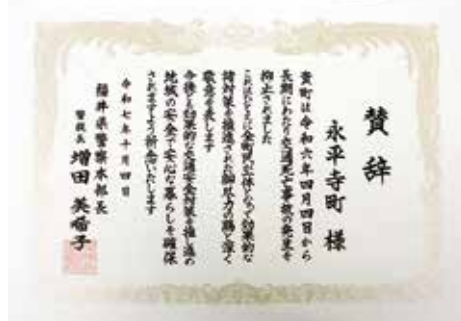 賛辞
永平寺町 様
貴町は令和六年四月四日から
長期にわたり交通死亡事故の発生を
抑止されました
これはひとえに全町民が一体となって効果的な
諸対策を推進された御尽力の賜と深く
敬意を表します
今後とも効果的な交通安全対策を推し進め
地域の安全で安心な暮らしを確保
されますよう祈念いたします
令和七年十月四日
福井県警察本部長
警視長 増田 美希子